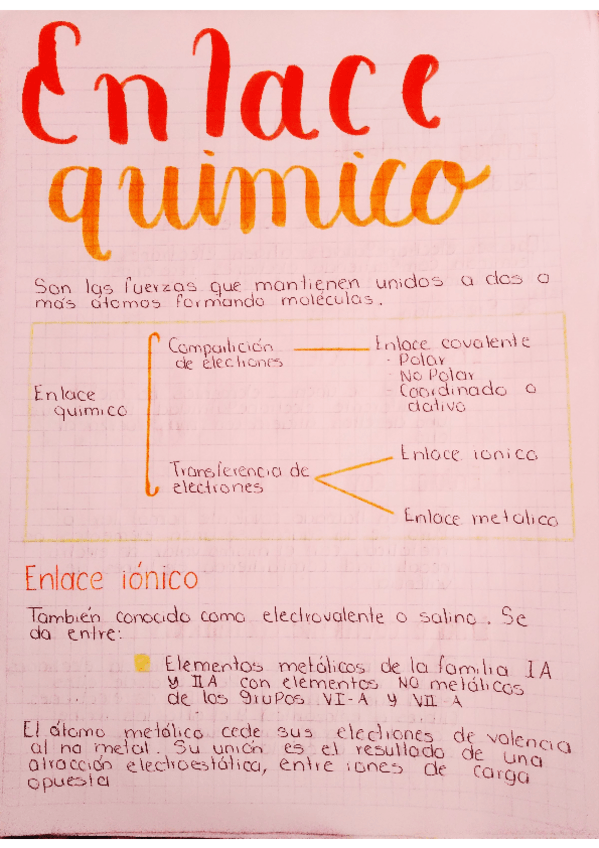 Enlace
químico
Son las fuerzas que mantienen unidos a dos o
más átomos formando moléculas.
Enlace
químico
Compartición
de electrones
Enlace covalente
· Polar
· No Polar
· Coordinado o
dativo
Transferencia de
electrones
Enlace ionico
Enlace metalico
Enlace iónico
También conocido como electrovalente o salino. Se
da entre:
Elementos metálicos de la familia IA
y IIA con elementos NO metálicos
de los grupos VI-A y VII-A
El átomo metálico cede sus electrones de valencia
al no metal. Su unión es el resultado de una
atracción electroestática, entre iones de carga
opuesta